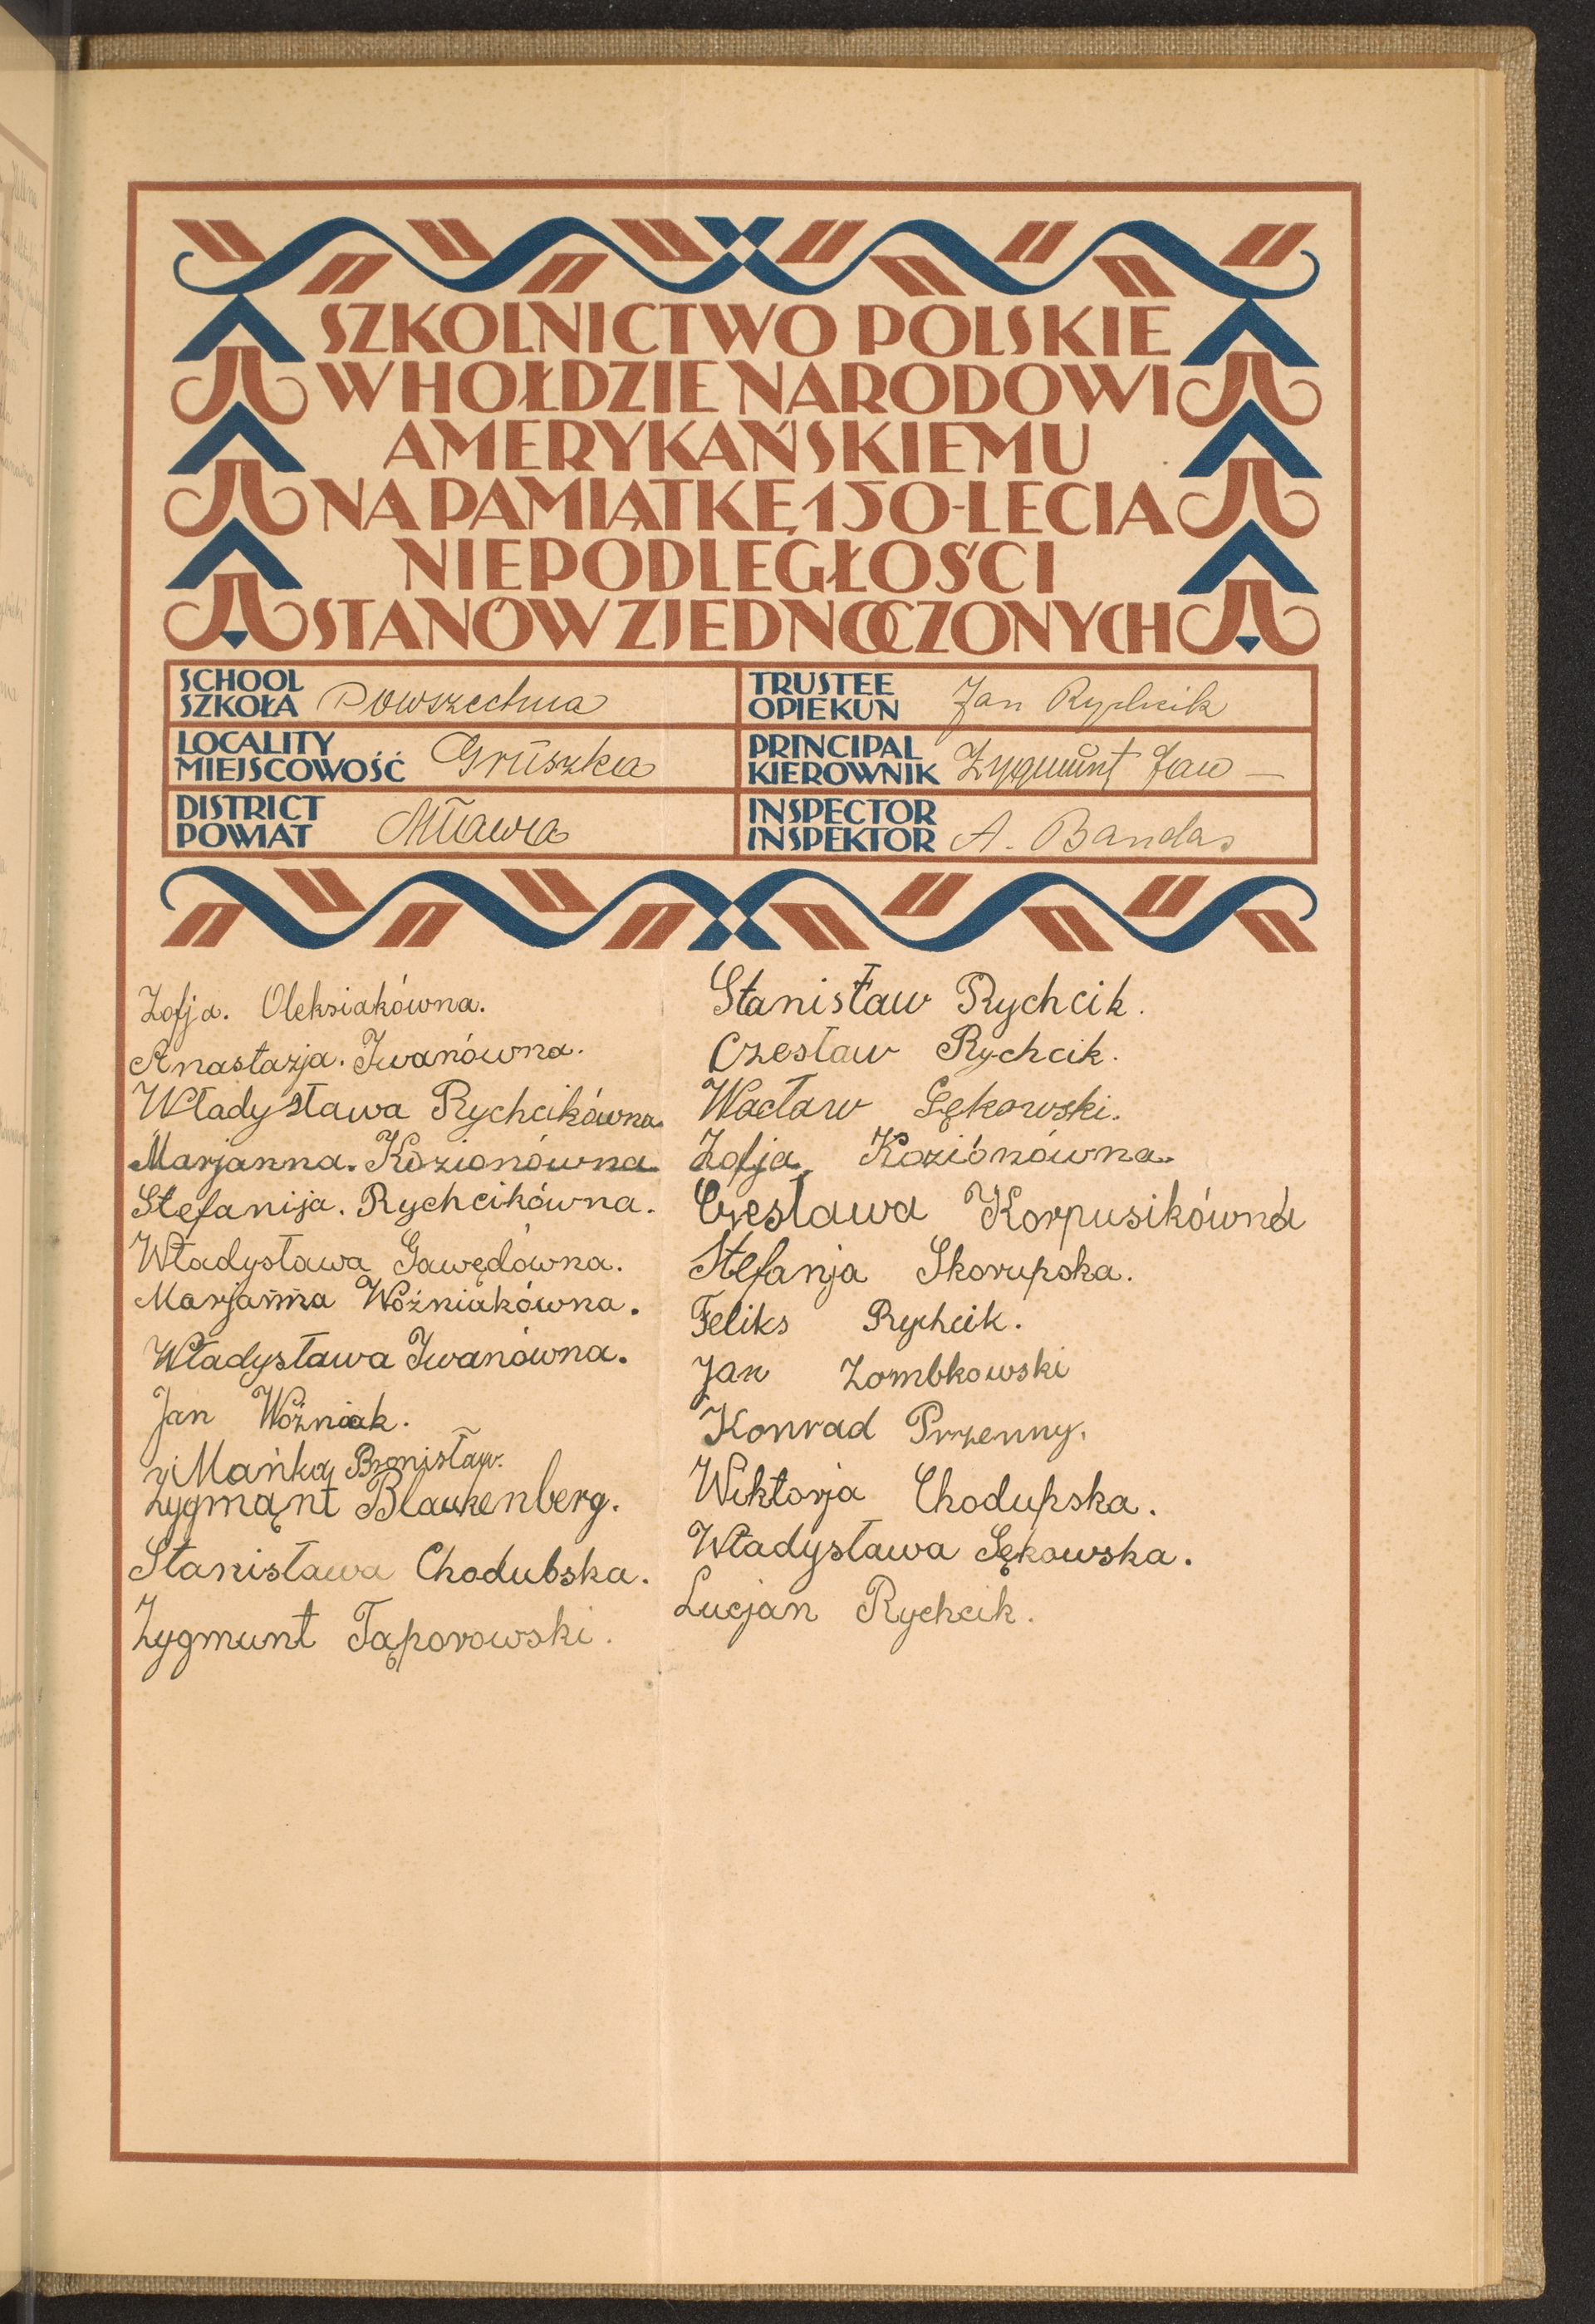 SZKOLNICTWO POLSKIE
W HOŁDZIE NARODOWI
AMERYKAŃSKIEMU
NA PAMIĄTKĘ 150-LECIA
NIEPODLEGŁOŚCI
STANÓW ZJEDNOCZONYCH
SCHOOL
SZKOŁA Powszechna
TRUSTEE
OPIEKUN Jan Rychcik
LOCALITY
MIEJSCOWOŚĆ Gruszka
PRINCIPAL
KIEROWNIK Zygmunt Jaw —
DISTRICT
POWIAT Mława
INSPECTOR
INSPEKTOR A. Bandas
Zofja. Oleksiakówna.
Anastazja. Iwanówna.
Władysława Rychcikówna.
Marjanna. Kozionówna
Stefanija. Rychcikówna.
Władysława Gawędówna.
Marjanna Woźniakówna.
Władysława Iwanówna.
Jan Woźniak.
Mańka Bronisław.
Zygmąnt Blaukenberg.
Stanisława Chodubska.
Zygmunt Tąporowski.
Stanisław Rychcik.
Czesław Rychcik.
Wacław Sękowski.
Zofja, Koziónówna.
Czesława Korpusikówna
Stefanja Skorupska.
Feliks Rychcik.
Jan Zombkowski
Konrad Przenny.
Wiktorja Chodupska.
Władysława Sękowska.
Lucjan Rychcik.